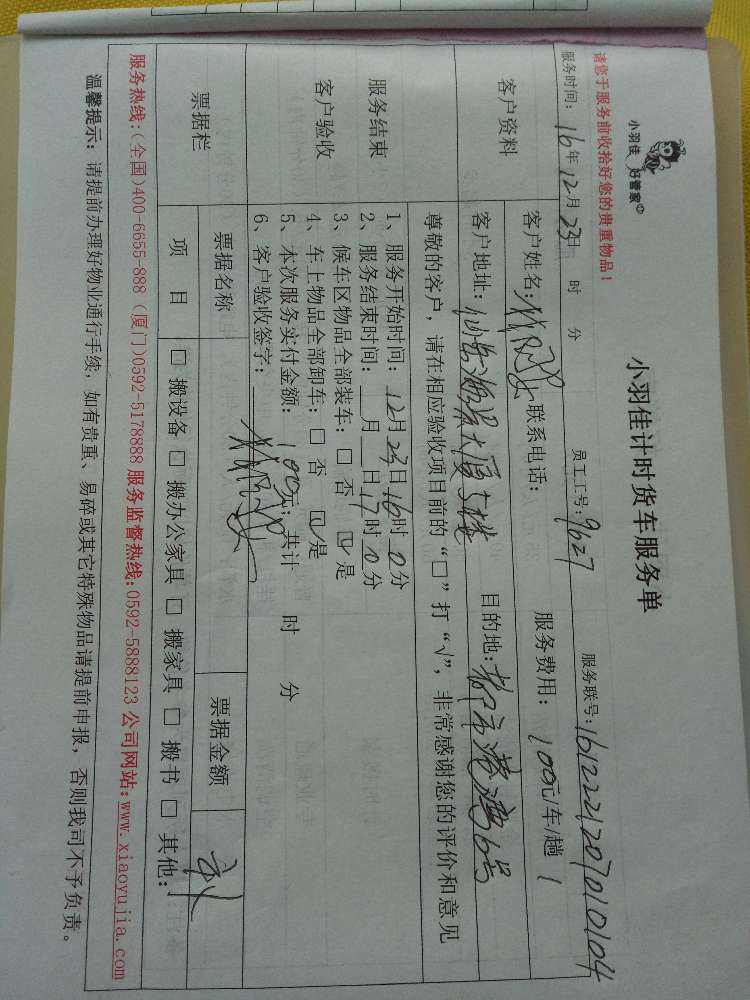 小羽佳 好管家
小羽佳计时货车服务单
请您于服务前收拾好您的贵重物品！
服务时间： 16年12月23日 时 分 员工工号：9627 服务联号：161222120701010104
客户资料
客户姓名： 联系电话： 服务费用： 100元/车/趟 1
客户地址： 大厦 目的地：都市港湾6号
尊敬的客户，请在相应验收项目前的“□”打“√”，非常感谢您的评价和意见
服务结束
客户验收
1、服务开始时间：12月23日16时0分
2、服务结束时间： 月 日17时0分
3、候车区物品全部装车：□ 否 ☑ 是
4、车上物品全部卸车：□ 否 ☑ 是
5、本次服务实付金额：100元；共计 时 分
6、客户验收签字：
票据栏 票据名称 票据金额
项 目 □ 搬设备 □ 搬办公家具 □ 搬家具 □ 搬书 □ 其他：
服务热线：(全国)400-6655-888 (厦门)0592-5178888 服务监督热线：0592-5888123 公司网站：www.xiaoyujia.com
温馨提示：请提前办理好物业通行手续，如有贵重、易碎或其它特殊物品请提前申报，否则我司不予负责。